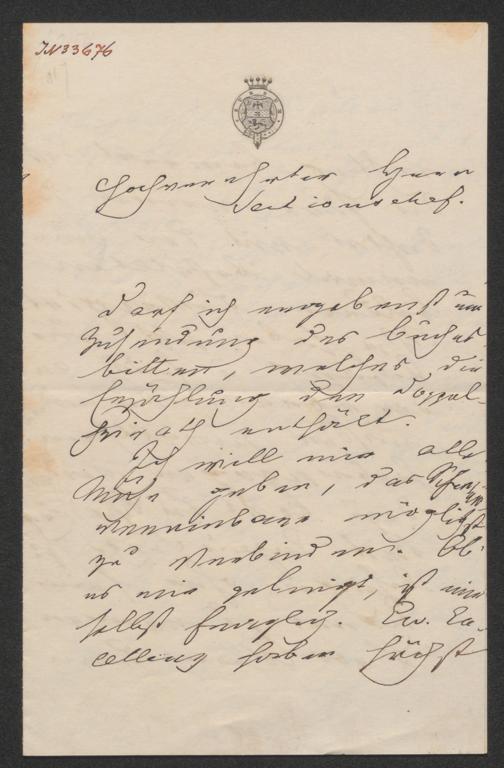 IN 33676
Hochverehrter Herr
Sectionschef.
Darf ich ergebenst um
Zusendung des Buches
bitten, welches die
Erzählung der Doppel-
heirath enthält.
Ich will mir alle
Mühe geben, das
Unvereinbare möglichst
zu verbinden. Ob
es mir gelingt, ist mir
selbst fraglich. Ew. Ex-
cellenz haben höchst